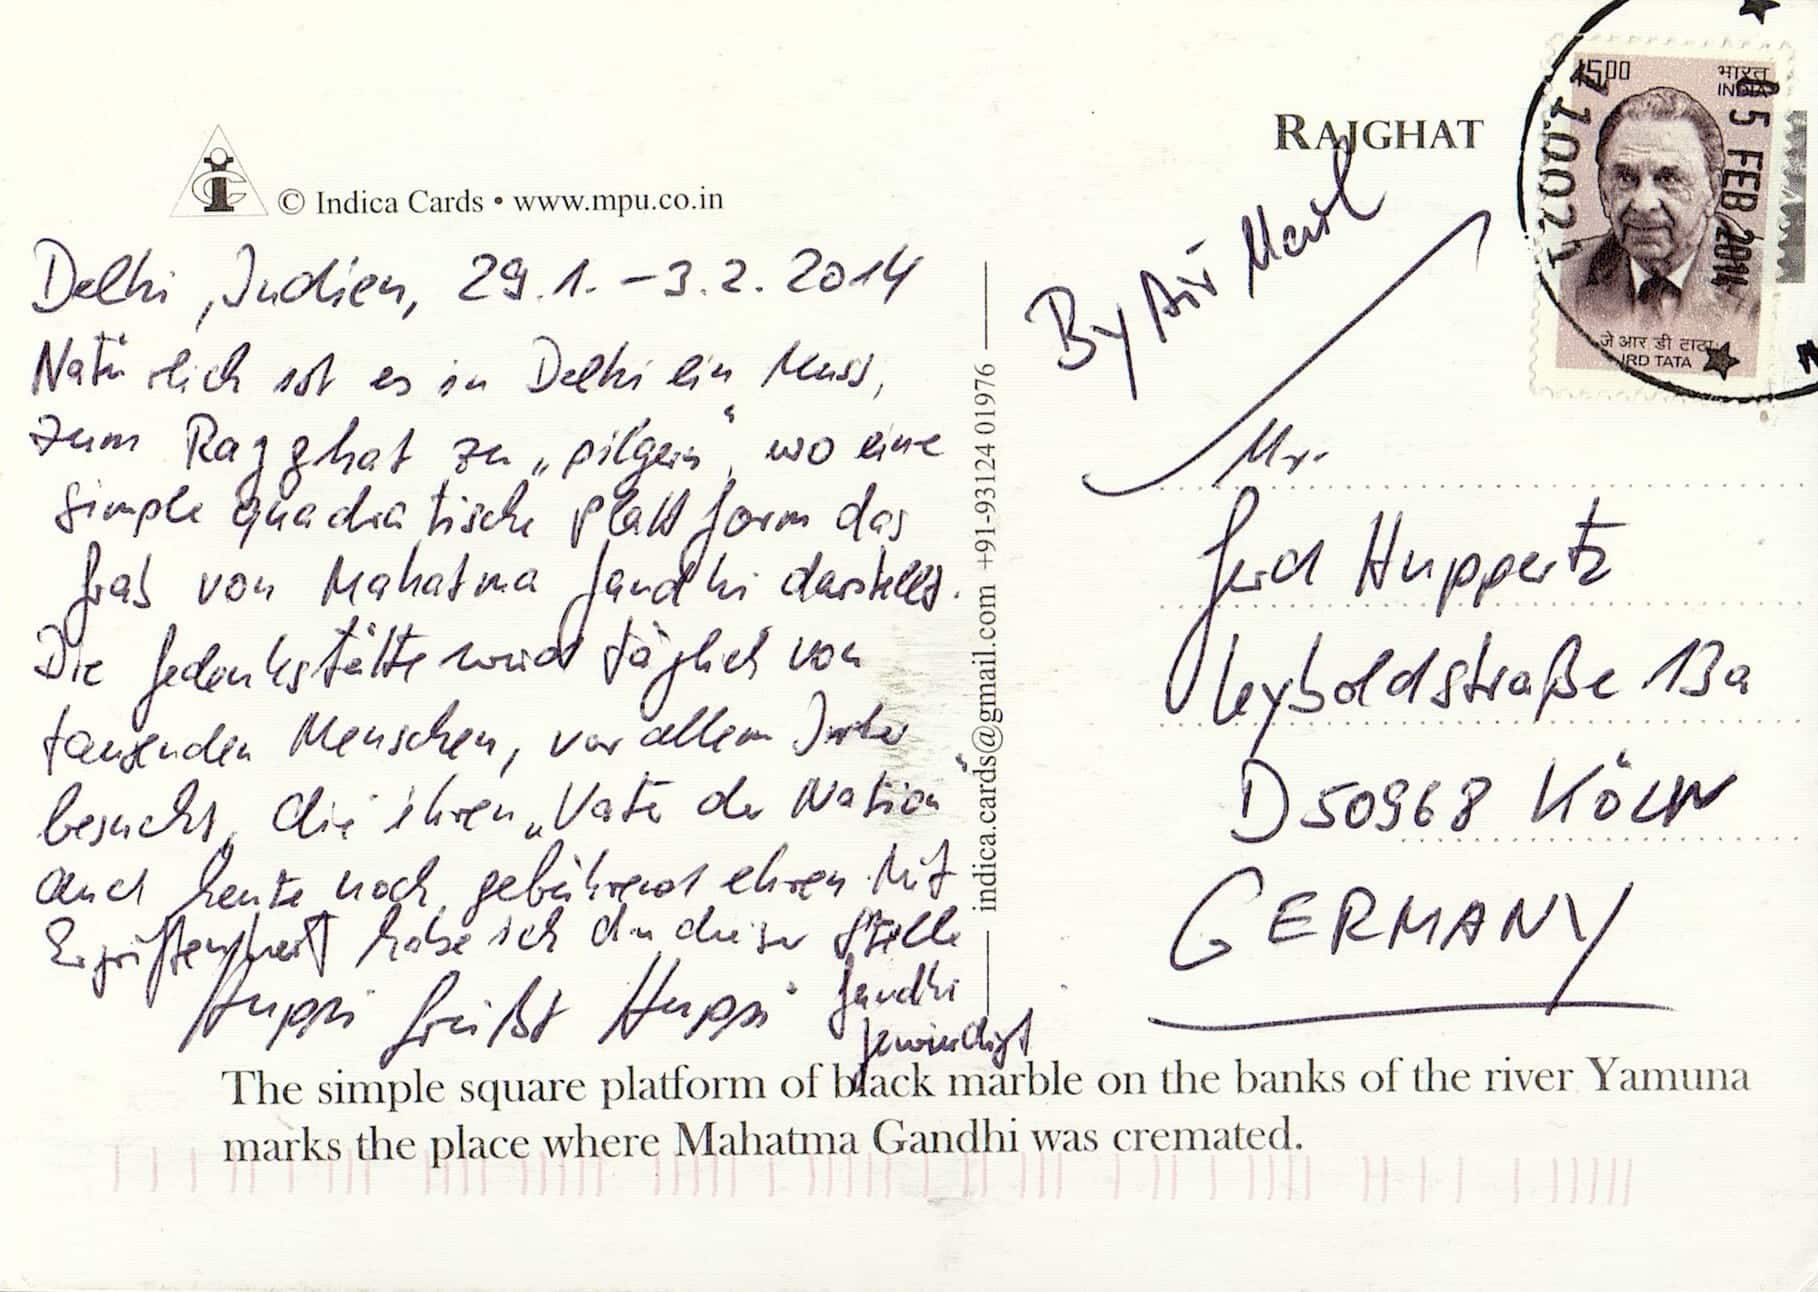 RAJGHAT
© Indica Cards • www.mpu.co.in
Delhi, Indien, 29.1. – 3.2. 2014
Natürlich ist es in Delhi ein Muss,
zum Rajghat zu „pilgern“, wo eine
simple quadratische Plattform das
Grab von Mahatma Gandhi darstellt.
Die Gedenkstätte wird täglich von
tausenden Menschen, vor allem Inder
besucht, die ihren „Vater der Nation“
auch heute noch gebührend ehren. Mit
Ergriffenheit habe ich an dieser Stelle
Gandhi
gewürdigt
Huppi grüßt Huppi
indica.cards@gmail.com +91-93124 01976
By Air Mail
1500
भारत
INDIA
जे आर डी टाटा
JRD TATA
05 FEB 2014
Mr.
Gerd Huppertz
Leyboldstraße 13a
D 50968 KÖLN
GERMANY
The simple square platform of black marble on the banks of the river Yamuna
marks the place where Mahatma Gandhi was cremated.